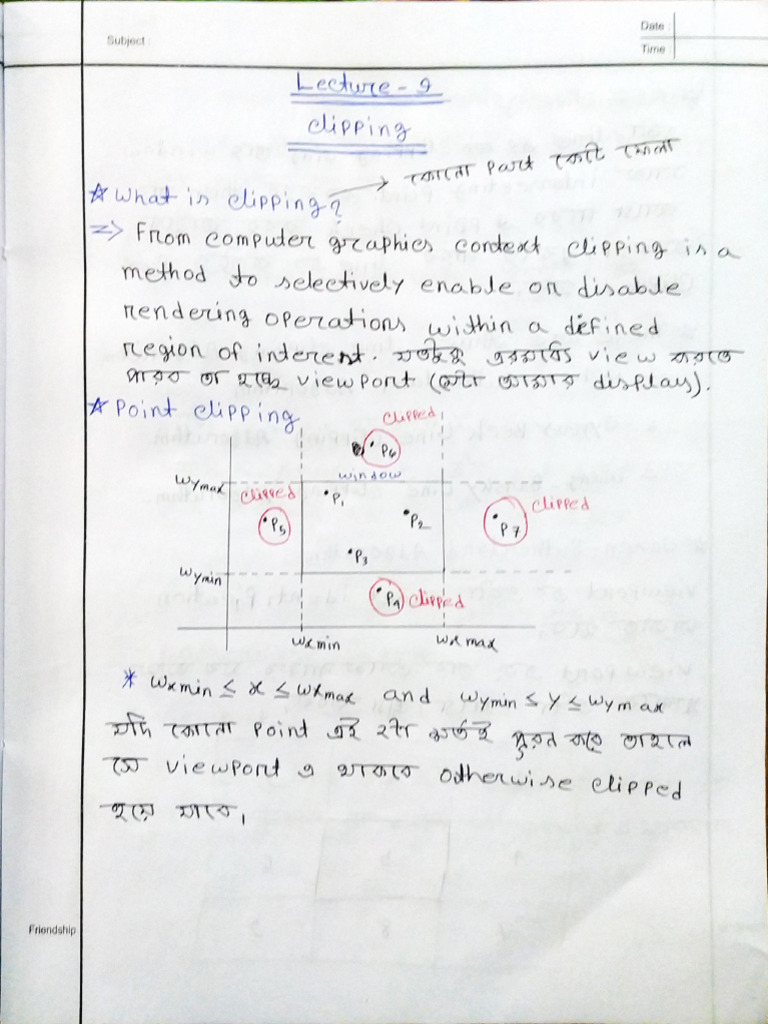 Subject :
Date :
Time :
Lecture - 9
clipping
কোনো part কেটে ফেলা
* What is clipping? →
=> From computer graphics context clipping is a
method to selectively enable or disable
rendering operations within a defined
region of interent. যতটুকু এরমধ্যে view করতে
পারব তা হচ্ছে viewport (যেটা আমার display).
* Point clipping
clipped
P6
window
wymax
clipped
P1
clipped
P5
P2
P7
P3
wymin
P4 clipped
wxmin
wxmax
* wxmin ≤ x ≤ wxmax and wymin ≤ y ≤ wymax
যদি কোনো point এই ২টা শর্তই পূরন করে তাহলে
সে viewport এ থাকবে otherwise clipped
হয়ে যাবে।
Friendship